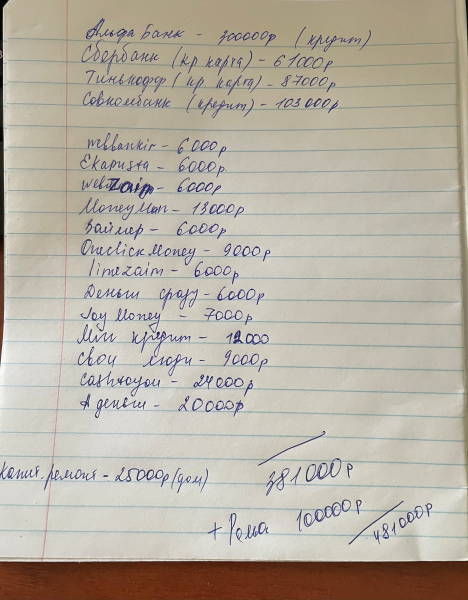 Альфа Банк - 300000р (кредит)
Сбербанк (кр карта) - 61000р
Тинькофф (кр. карта) - 87000р
Совкомбанк (кредит) - 103000р.
webbankir - 6000р
Ekapusta - 6000р
webzaim - 6000р
MoneyMan - 13000р
Займер - 6000р
OneclickMoney - 9000р
limezaim - 6000р
Деньги сразу - 6000р
Joy Money - 7000р
Мит кредит - 12000
Свои люди - 9000р
Cashtoyou - 24000р
А деньги - 20000р
Капит. ремонт - 25000р (дом)
381000р
+ Рома 100000р
481000р